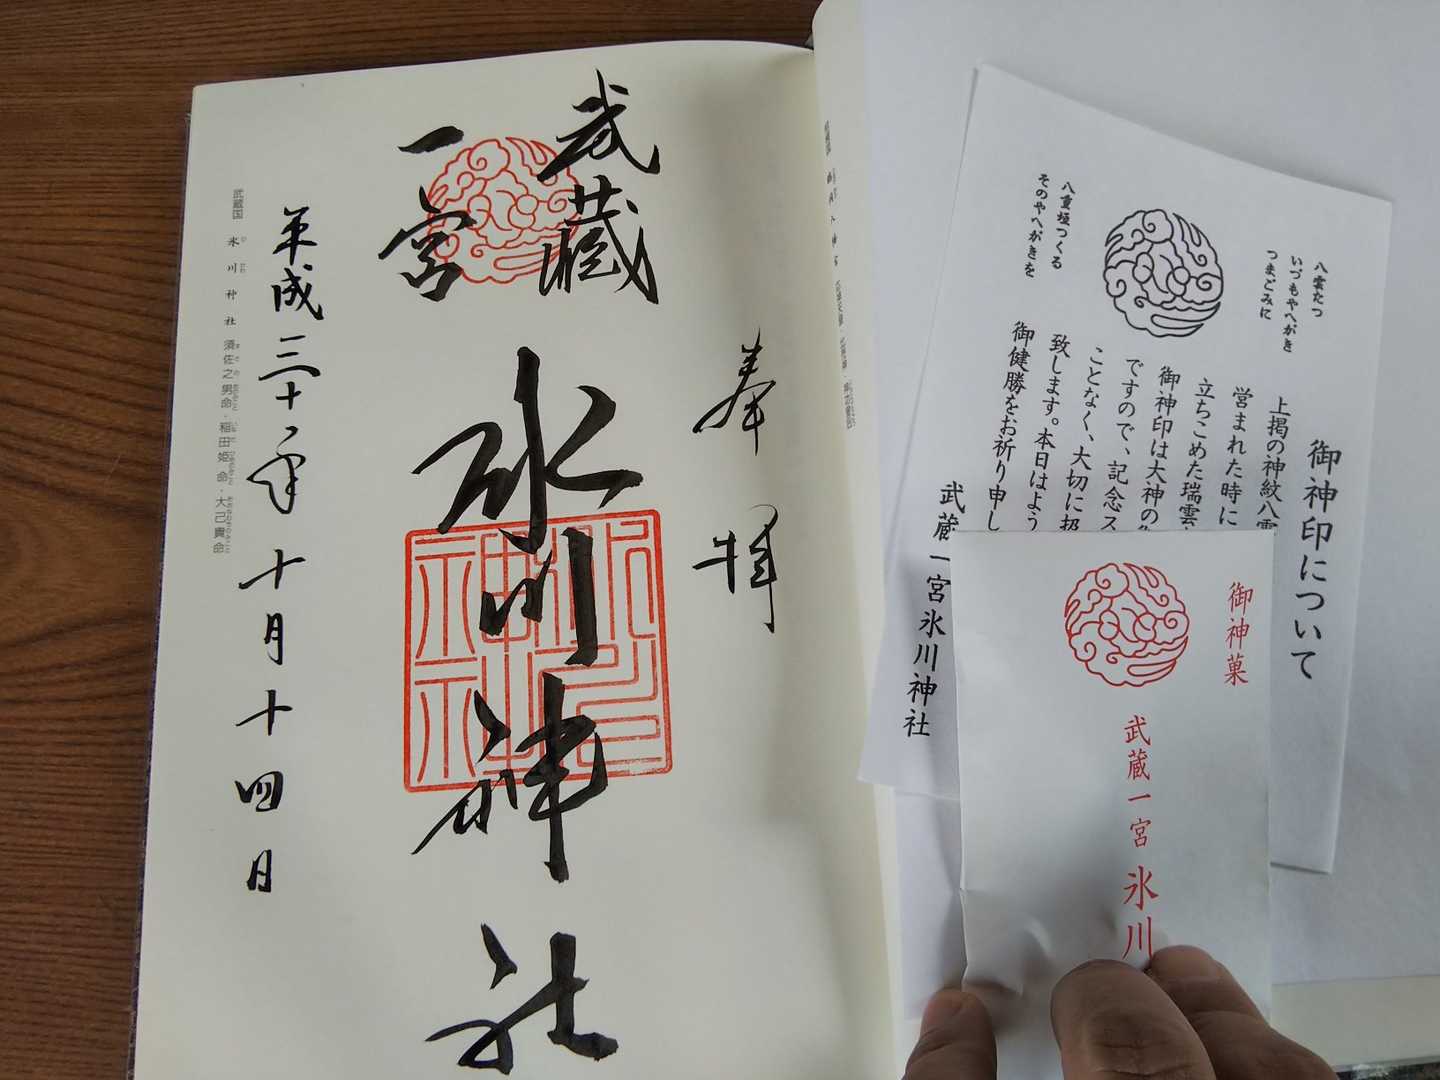 奉拝
武蔵
一宮
氷川神社
平成三十年十月十四日
武蔵国 氷川神社 須佐之男命・稲田姫命・大己貴命
御神印について
八雲たつ
いづもやへがき
つまごみに
八重垣つくる
そのやへがきを
上掲の神紋八雲
営まれた時に
立ちこめた瑞雲
御神印は大神の
ですので、記念ス
ことなく、大切に扱
致します。本日はよう
御健勝をお祈り申し
武蔵一宮氷川神社
御神菓
武蔵一宮氷川